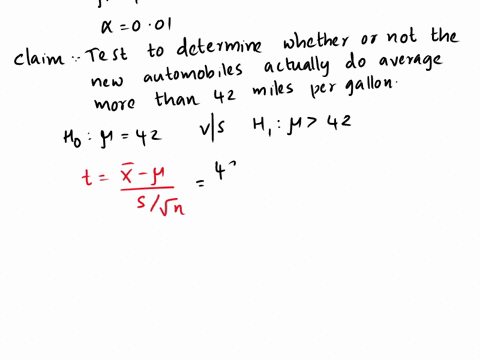 α = 0.01
Claim :- Test to determine whether or not the
new automobiles actually do average
more than 42 miles per gallon.
H₀ : μ = 42 v/s H₁ : μ > 42
t = x̄ - μ / s/√n = 4